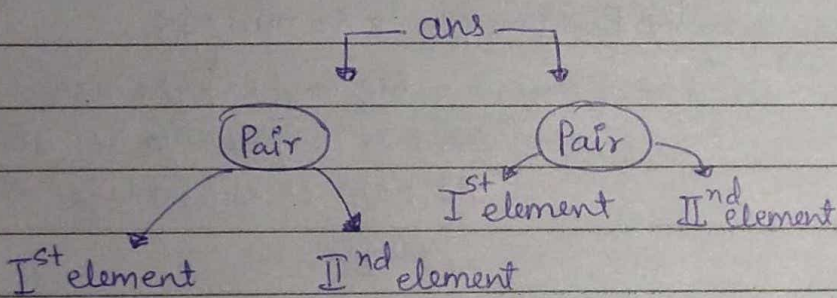 ans
Pair Pair
Ist element IInd element
Ist element IInd element